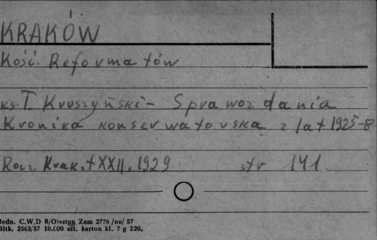 KRAKÓW
Kość. Reformatów
ks. T. Kruszyński - Sprawozdania
Kronika konserwatorska z lat 1925-8
Rocz. Krak. t XXII. 1929 str 141
Jedn. C.W.D 8/Olsztyn Zam 2776 /on/ 57
Bltk. 2563/57 10.000 szt. karton kl. 7 g 220.